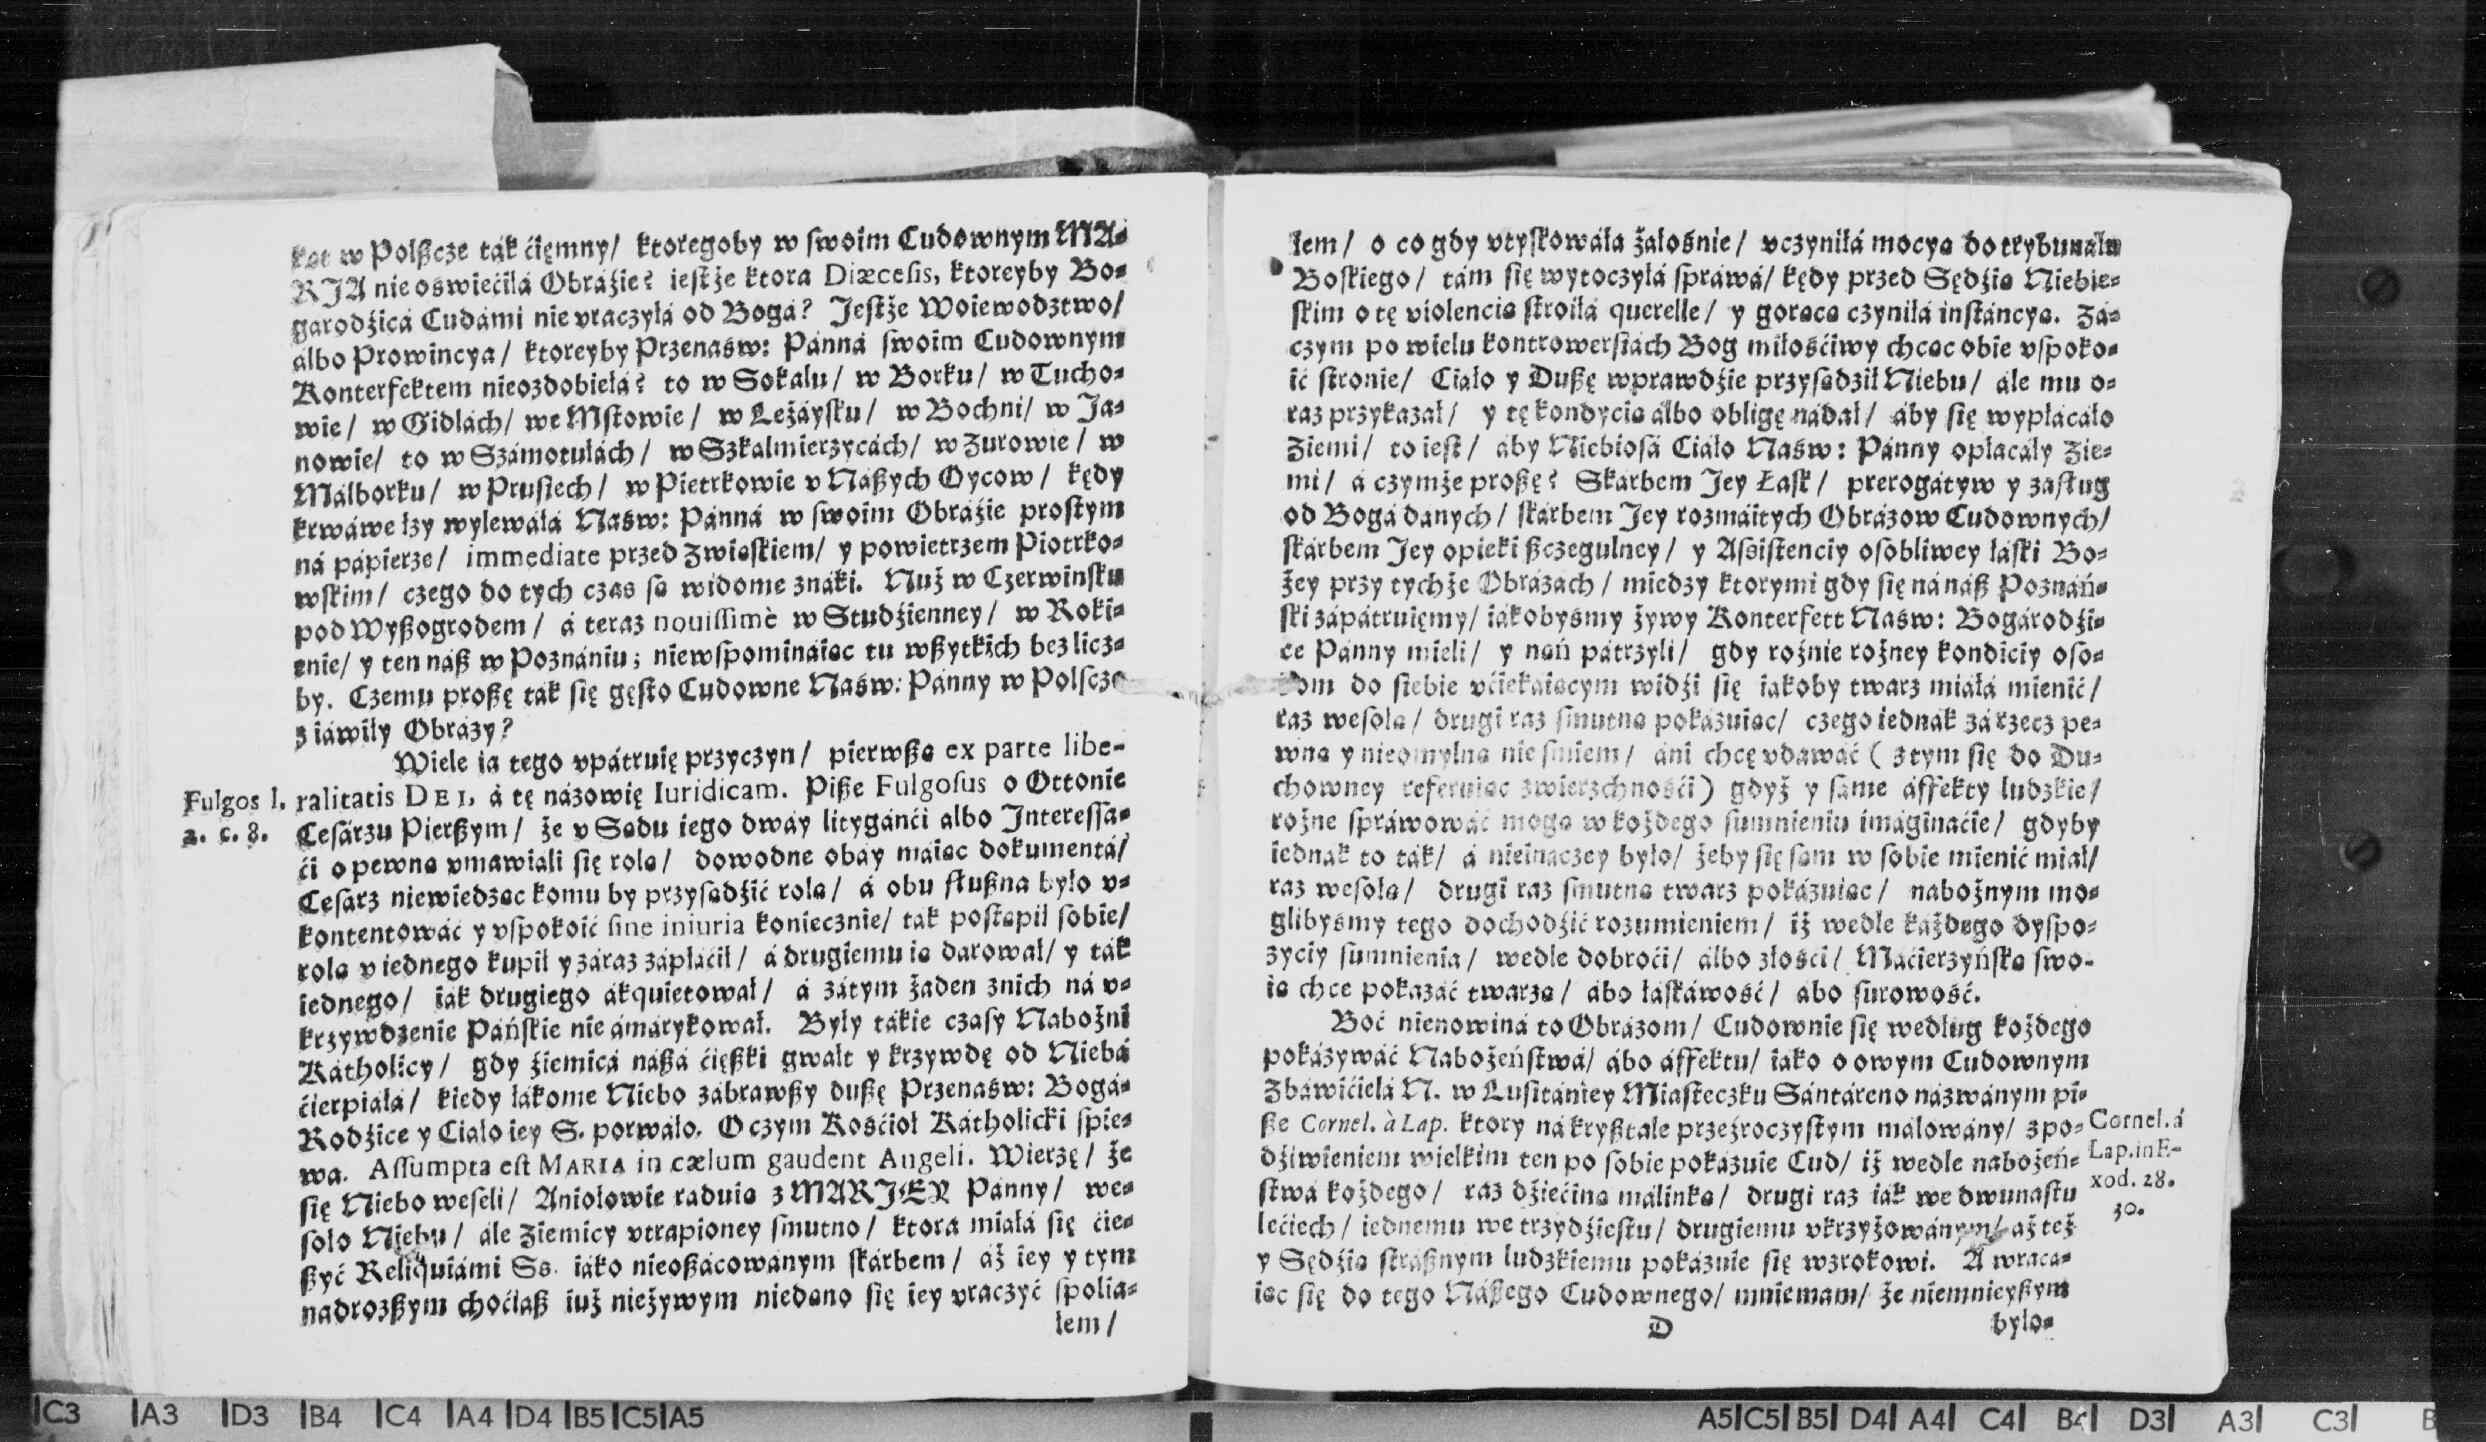 kąt w Polßcze ták ćięmny/ ktoregoby w ſwoim Cudownym MA-
RJA nie oświećiłá Obráźie? ieſtże ktora Diæceſis, ktoreyby Bo-
garodźicá Cudámi nie vraczyłá od Bogá? Jeſtże Woiewodztwo/
álbo Prowincya/ ktoreyby Przenaśw: Pánná ſwoim Cudownym
Konterfektem nieozdobiełá? to w Sokalu/ w Borku/ w Tucho-
wie/ w Gidlách/ we Mſtowie/ w Leżáyſku/ w Bochni/ w Ja-
nowie/ to w Számotułách/ w Szkalmierzycách/ w Zurowie/ w
Málborku/ w Pruſiech/ w Pietrkowie v Náßych Oycow/ kędy
krwáwe łzy wylewáłá Naśw: Pánná w ſwoim Obráźie proſtym
ná pápierze/ immediate przed Zwiąſkiem/ y powietrzem Piotrko-
wſkim/ czego do tych czas ſą widome znáki. Nuż w Czerwinſku
pod Wyßogrodem/ á teraz nouiſſimè w Studźienney/ w Roki-
tnie/ y ten náß w Poznániu; niewſpomináiąc tu wßytkich bez licz-
by. Czemu proßę ták się gęſto Cudowne Naśw: Pánny w Polſcze
ziáwiły Obrázy?
Wiele ia tego vpátruię przyczyn/ pierwßą ex parte libe-
Fulgos l. ralitatis DEI, á tę názowię Iuridicam. Piße Fulgoſus o Ottonie
2. c. 8. Ceſárzu Pierßym/ że v Sądu iego dwáy litygánći albo Intereſſa-
ći o pewną vmawiali się rolą/ dowodne obáy máiąc dokumentá/
Ceſárz niewiedząc komu by przyſądźić rolą/ á obu ſłußna było v-
kontentowáć y vſpokoić ſine iniuria koniecznie/ ták poſtąpił ſobie/
rolą v iednego kupił y záraz zápłáćił/ á drugiemu ią dárował/ y ták
iednego/ iák drugiego ákquietował/ á zátym żaden znich ná v-
krzywdzenie Páńſkie nie ámárykował. Były tákie czáſy Nabożni
Kátholicy/ gdy źiemicá náßá ćięßki gwałt y krzywdę od Niebá
ćierpiáłá/ kiedy łákome Niebo zábrawßy dußę Przenaśw: Bogá-
Rodźice y Ciáło iey S. porwáło. O czym Kośćioł Kátholicki ſpie-
wa. Aſſumpta eſt MARIA in cælum gaudent Angeli. Wierzę/ że
się Niebo weſeli/ Aniołowie raduią z MARJEY Pánny/ we-
ſoło Niebu/ ále Ziemicy vtrapioney ſmutno/ ktora miáłá się ćie-
ßyć Reliquiámi SS. iáko nieoßácowánym ſkárbem/ áż iey y tym
nadrozßym choćiaß iuż nieżywym niedano się iey vraczyć ſpolia-
łem/
łem/ o co gdy vtyſkowáłá żáłośnie/ vczyniłá mocyą do trybunału
Boſkiego/ tám się wytoczyłá ſpráwá/ kędy przed Sędźią Niebie-
ſkim o tę violencią ſtroiłá querelle/ y gorącą czyniłá inſtáncyą. Zá-
czym po wielu kontrowerſiách Bog miłośćiwy chcąc obie vſpoko-
ić ſtronie/ Ciáło y Dußę wprawdźie przyſądził Niebu/ ále mu o-
raz przykazał/ y tę kondycią álbo obligę nádał/ áby się wypłácáło
Ziemi/ to ieſt/ áby Niebioſá Ciáło Naśw: Pánny opłacáły Zie-
mi/ á czymże proßę? Skárbem Jey Łáſk/ prerogátyw y zaſług
od Bogá dánych/ ſkárbem Jey rozmáitych Obrázow Cudownych/
ſkárbem Jey opieki ßczegulney/ y Aſsiſtenciy oſobliwey łáſki Bo-
żey przy tychże Obrázách/ miedzy ktorymi gdy się ná náß Poznáń-
ſki zápátruięmy/ iákobyśmy żywy Konterfett Naśw: Bogárodźi-
ce Pánny mieli/ y nąń pátrzyli/ gdy rożnie rożney kondiciy oſo-
bom do ſiebie vćiekáiącym widźi się iakoby twarz miáłá mienić/
raz weſołą/ drugi raz ſmutną pokázuiąc/ czego iednák zá rzecz pe-
wną y nieomylną nie śmiem/ áni chcę vdáwáć (z tym się do Du-
chowney referuiąc zwierzchnośći) gdyż y ſáme áffekty ludzkie/
rożne ſpráwowáć mogą w kożdego ſumnieniu imáginácie/ gdyby
iednák to ták/ á nieináczey było/ żeby się ſam w ſobie mienić miał/
raz weſołą/ drugi raz ſmutną twarz pokázuiąc/ nabożnym mo-
glibyśmy tego dochodźić rozumieniem/ iż wedle káżdego dyſpo-
zyciy ſumnienia/ wedle dobroći/ álbo złośći/ Máćierzyńſką ſwo-
ią chce pokazáć twarzą/ ábo łáſkáwość/ abo ſurowość.
Boć nienowiná to Obrázom/ Cudownie się według kożdego
pokázywáć Nabożeńſtwá/ ábo áffektu/ iáko o owym Cudownym
Zbáwićielá N. w Luſitániey Miáſteczku Sántáreno názwánym pi-
ße Cornel. à Lap. ktory ná kryßtale przeźroczyſtym málowány/ z po- Cornel. á
dźiwieniem wielkim ten po ſobie pokázuie Cud/ iż wedle nabożeń- Lap. in E-
ſtwá kożdego/ raz dźiećiną málinką/ drugi raz iák we dwunaſtu xod. 28.
lećiech/ iednemu we trzydźieſtu/ drugiemu vkrzyżowánym/ aż też 30.
y Sędźią ſtráßnym ludzkiemu pokázuie się wzrokowi. A wracá-
iąc się do tego Náßego Cudownego/ mniemam/ że niemnieyßym
D było-
C3 A3 D3 B4 C4 A4 D4 B5 C5 A5
A5 C5 B5 D4 A4 C4 B4 D3 A3 C3 B